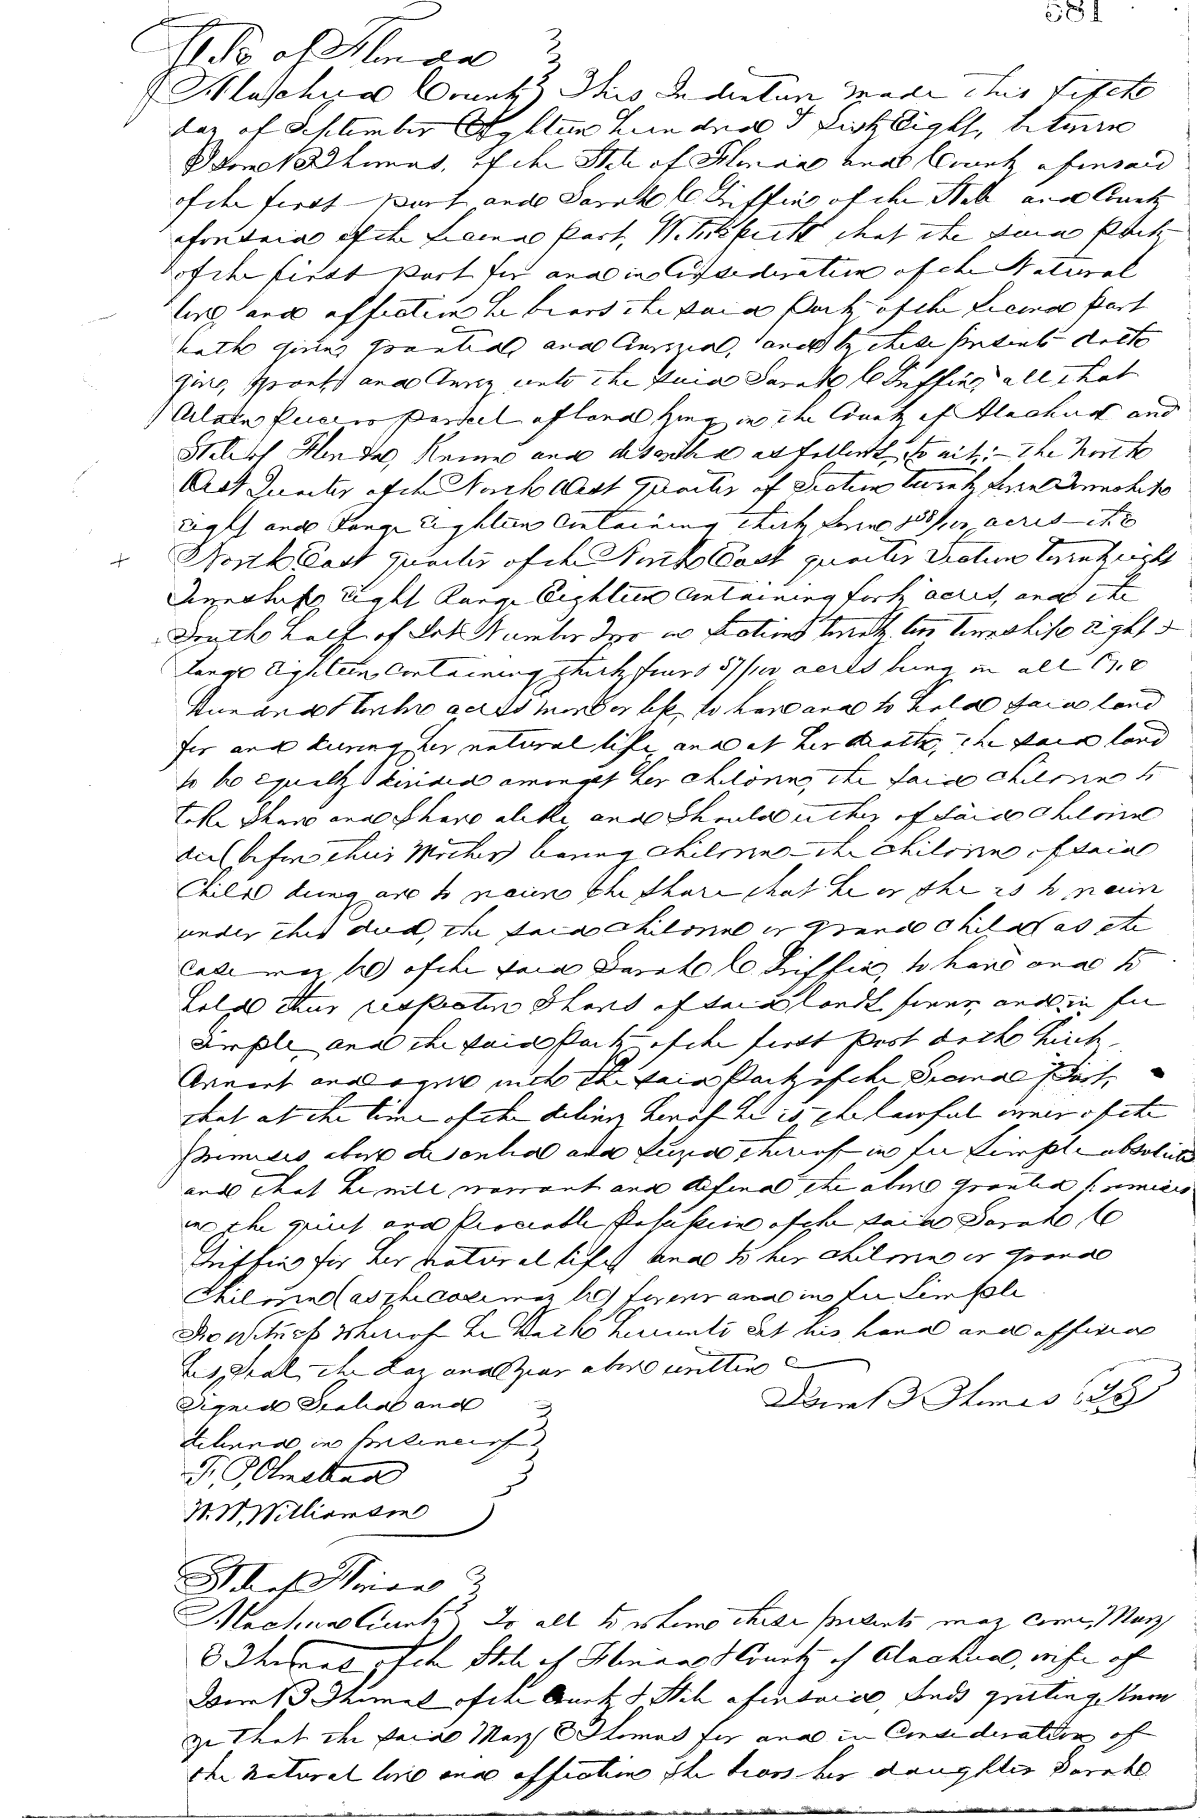 581
State of Florida
Alachua County This Indenture made this fifth
day of September Eighteen hundred & Sixty Eight, between
B Thomas, of the State of Florida and County aforesaid
of the first part and Sarah C Griffin of the State and County
aforesaid of the Second Part, Witnesseth that the said Party
of the first part for and in Consideration of the Natural
love and affection he bears the said Party of the Second Part
hath given, granted, and Conveyed, and by these presents doth
give, grant, and Convey unto the said Sarah C Griffin, all that
Certain Piece or Parcel of land lying in the County of Alachua and
State of Florida, Known and described as follows, to wit:- the North
West Quarter of the North West Quarter of Section twenty Seven Township
eight and Range eighteen Containing thirty Seven /100 acres - the
North East quarter of the North East quarter Section twenty eight
Township Eight Range Eighteen Containing forty acres, and the
South half of Lot Number Two in Section twenty two township Eight &
range Eighteen, Containing thirty four & 57/100 acres being in all One
hundred & twelve acres more or less, to have and to hold said land
for and during her natural life, and at her death, the said land
to be equally divided amongst her children, the said children to
take Share and Share alike and Should either of said children
die (before their Mother) leaving children - the children of said
Child dying are to receive the Share that he or she is to receive
under this deed, the said children or grand child (as the
Case may be) of the said Sarah C Griffin, to have and to
hold their respective Shares of said lands forever, and in fee
Simple, and the said Party of the first part doth hereby
Covenant and agree with the said Party of the Second Part,
that at the time of the delivery hereof he is the lawful owner of the
premises above described and Seized thereof in fee Simple absolute
and that he will warrant and defend the above granted premises
in the quiet and Peaceable Possession of the said Sarah C
Griffin for her natural life and to her children or grand
Children (as the case may be) forever and in fee Simple
In Witness Whereof he Hath hereunto Set his hand and affixed
his Seal, the day and Year above written
Signed Sealed and
B Thomas
delivered in presence of
F. P. Olmstead
W. W. Williamson
State of Florida
Alachua County To all to whom these presents may come, Mary
E Thomas of the State of Florida & County of Alachua, wife of
B Thomas of the County & State aforesaid, Sends greeting, Know
ye that the said Mary E Thomas for and in Consideration of
the Natural love and affection She bears her daughter Sarah